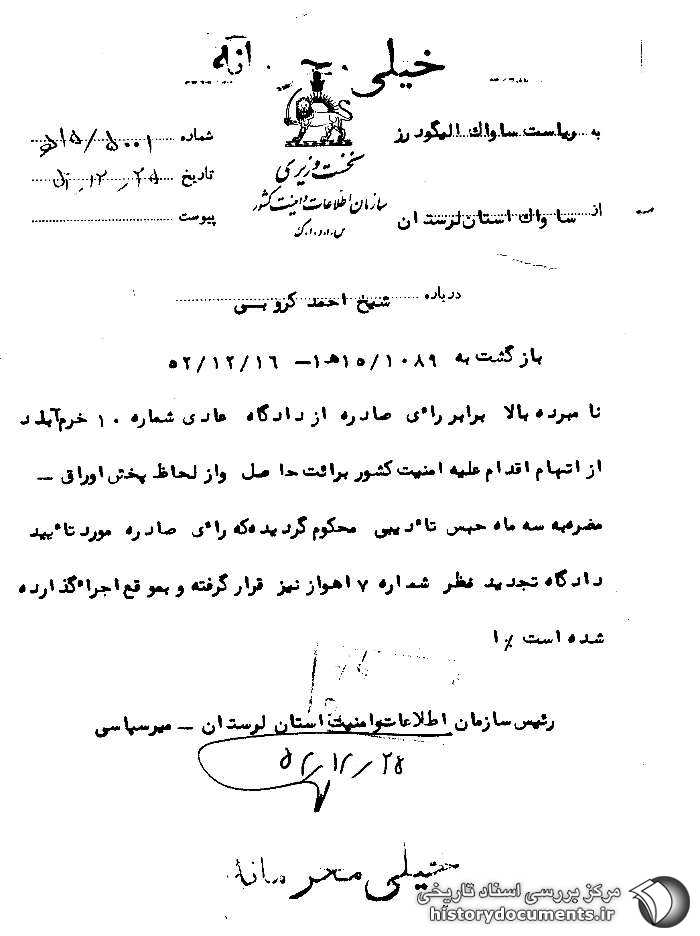 خیلی محرمانه
به ریاست ساواک الیگودرز
از ساواک استان لرستان
نخست وزیری
سازمان اطلاعات و امنیت کشور
س.ا.و.ا.ک
شماره ۵۰۰۱/۱۵ﻫ
تاریخ ۲۵-۱۲-۵۲
پیوست
درباره شیخ احمد کروبی
بازگشت به ۱۰۸۹/۱۵ﻫ۱– ۵۲/۱۲/۱۶
نامبرده بالا برابر رأی صادره از دادگاه عادی شماره ۱۰ خرم‌آباد
از اتهام اقدام علیه امنیت کشور برائت حاصل واز لحاظ پخش اوراق –
مضره به سه ماه حبس تأدیبی محکوم گردیده که رأی صادره مورد تأیید
دادگاه تجدید نظر شماره ۷ اهواز نیز قرار گرفته و بموقع اجرا گذارده
شده است ٪ا
رئیس سازمان اطلاعات وامنیت استان لرستان – میرسپاسی
۵۲-۱۲-۲۵
خیلی محرمانه
مرکز بررسی اسناد تاریخی
historydocuments.ir